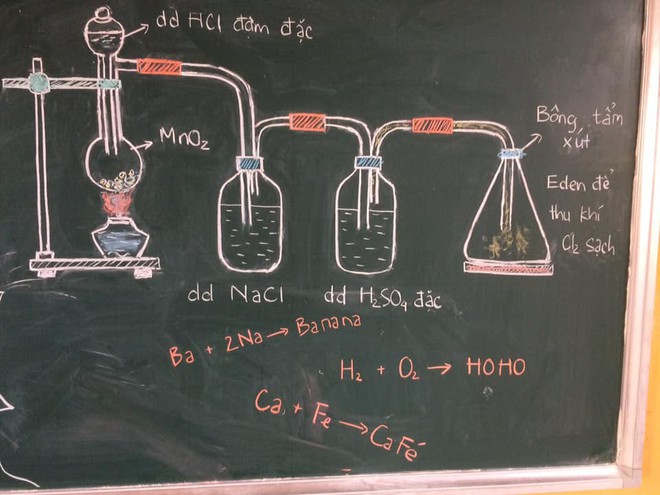 dd HCl đậm đặc
MnO₂
Bông tẩm
xút
Eden để
thu khí
Cl₂ sạch
dd NaCl
dd H₂SO₄ đặc
Ba + 2Na → Banana
H₂ + O₂ → HOHO
Ca + Fe → CaFé